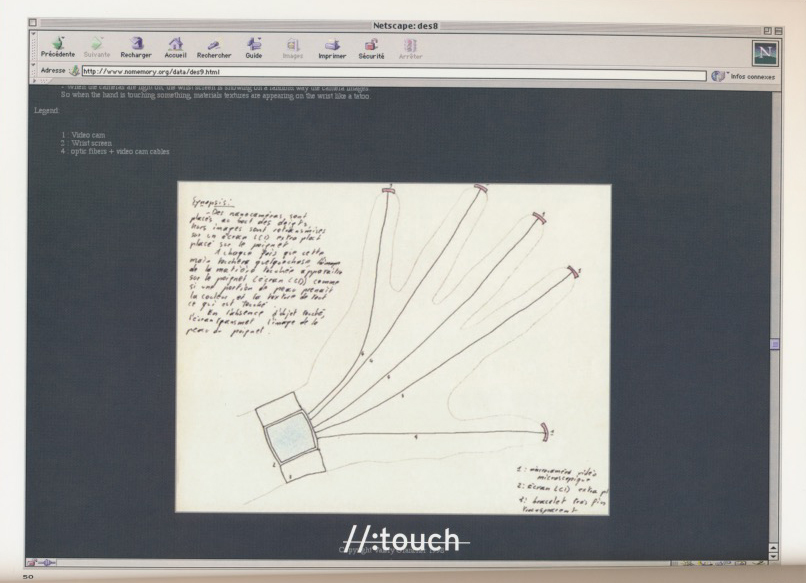 Netscape: des8
Précédente Suivante Recharger Accueil Rechercher Guide Images Imprimer Sécurité Arrêter
N
Adresse http://www.nomemory.org/data/des9.html Infos connexes
- When the cameras are light on, the wrist screen is showing on a random way the camera images.
So when the hand is touching something, materials textures are appearing on the wrist like a
Legend:
1 : Video cam
2 : Wrist screen
4 : optic fibers + video cam
Synopsis:
- Des nanocaméras sont
placés au bout des doigts.
images sont retransmises
sur un écran extra plat
placé sur le poignet
A chaque fois que cette
main touchera quelque chose, l'image
de la matière touchée apparaîtra
sur le poignet (écran) comme
si une portion de peau prenait
la couleur et la texture de tout
ce qui est touché
En l'absence d'objet touché,
l'écran transmet l'image de la
peau du poignet.
4
4
4
4
4
1
2
1: vidéo
microscopique
2: écran extra
4: bracelet très fin
transparent
//:touch
50